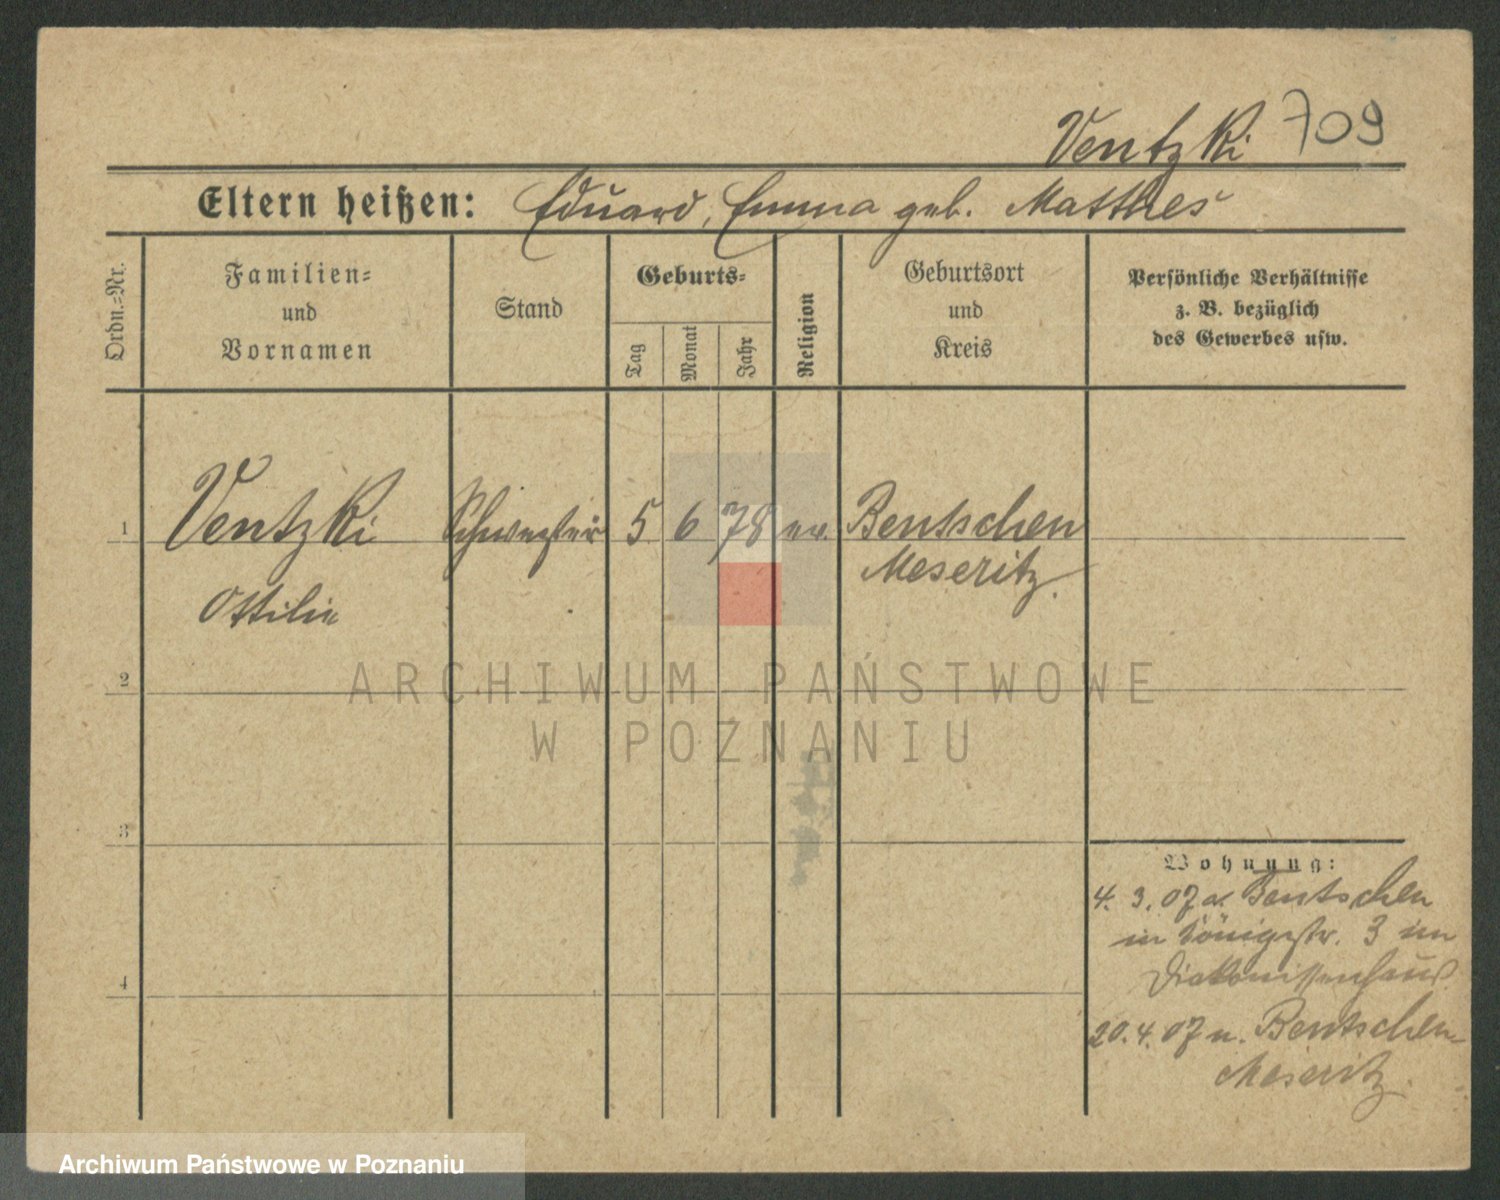 Ventzki 709
Eltern heißen: Eduard, Emma geb. Matthes
Ordn.=Nr.
Familien=
und
Vornamen
Stand
Geburts=
Tag
Monat
Jahr
Religion
Geburtsort
und
Kreis
Persönliche Verhältnisse
z. B. bezüglich
des Gewerbes usw.
1 Ventzki Schwester 5 6 78 ev. Bentschen
Meseritz.
Ottilie
2
ARCHIWUM PAŃSTWOWE
W POZNANIU
3
Wohnung:
4. 3. 07 a. Bentschen
in Königstr. 3 im
Diakonissenhaus
4
20. 4. 07 n. Bentschen
Meseritz.
Archiwum Państwowe w Poznaniu